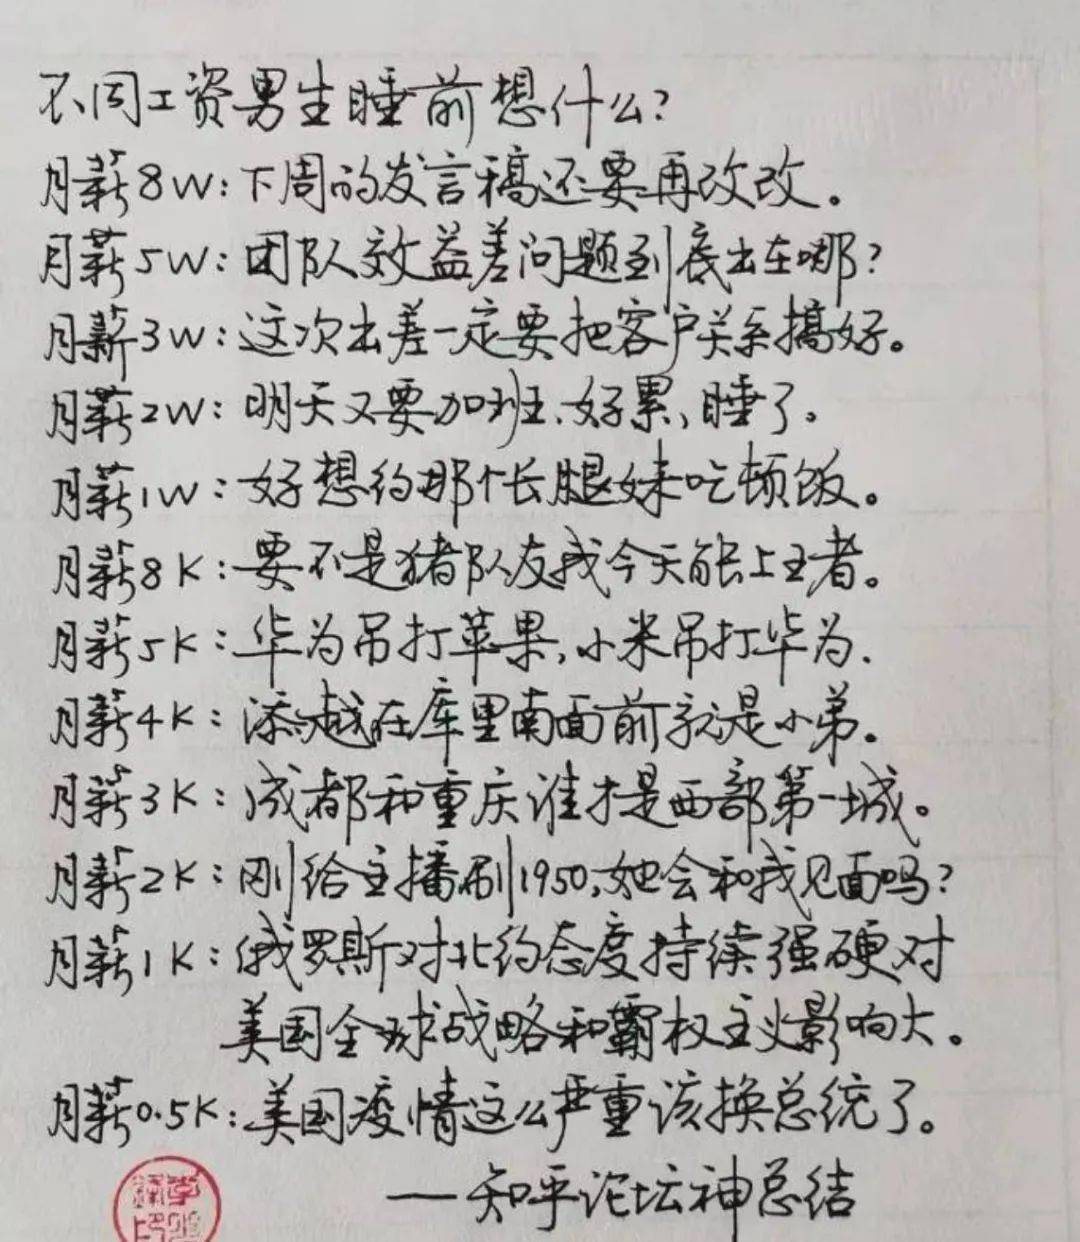 不同工资男生睡前想什么?
月薪8W:下周的发言稿还要再改改。
月薪5W:团队效益差问题到底出在哪?
月薪3W:这次出差一定要把客户关系搞好。
月薪2W:明天又要加班、好累,睡了。
月薪1W:好想约那个长腿妹吃顿饭。
月薪8K:要不是猪队友我今天能上王者。
月薪5K:华为吊打苹果,小米吊打华为.
月薪4K:添越在库里南面前就是小弟。
月薪3K:成都和重庆谁才是西部第一城。
月薪2K:刚给主播刷1950,她会和我见面吗?
月薪1K:俄罗斯对北约态度持续强硬对
美国全球战略和霸权主义影响大。
月薪0.5K:美国疫情这么严重该换总统了。
——知乎论坛神总结